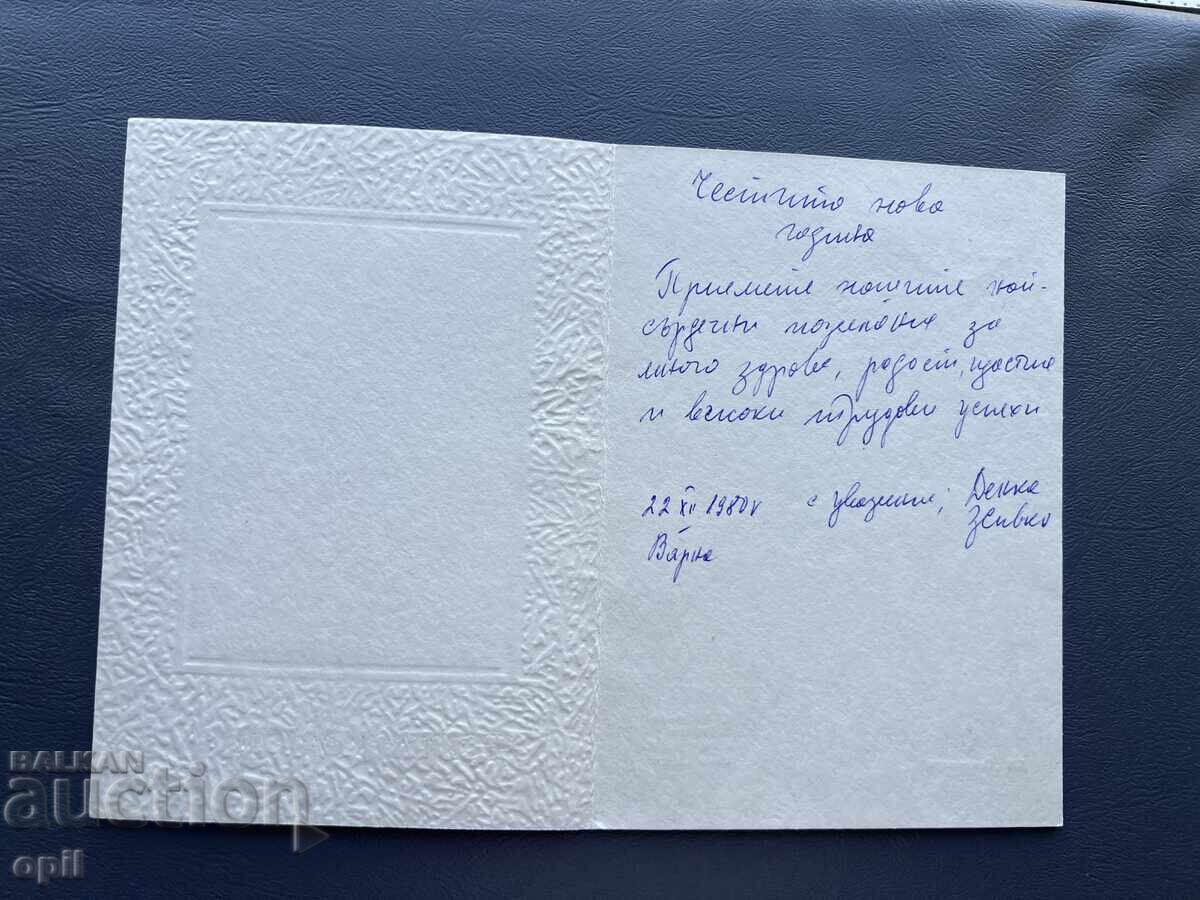 Честито нова
година
Приемете нашите най-
сърдечни пожелания за
много здраве, радост, щастие
и високи трудови успехи
22 XII 1980 г с уважение, Денка
Живко
Варна
BALKAN
auction
opil